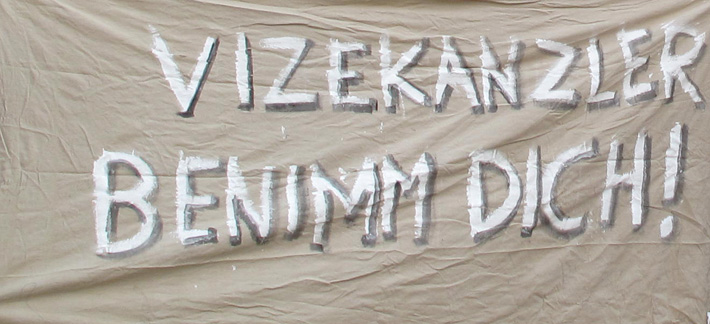 VIZEKANZLER
BENIMM DICH!